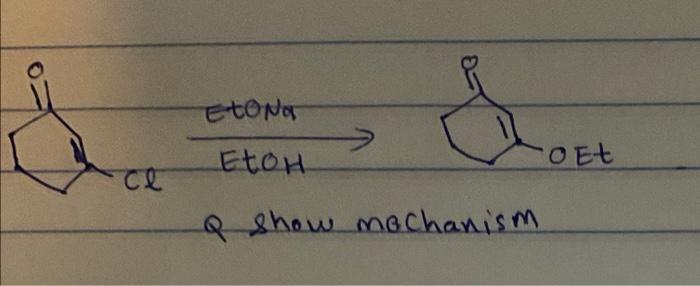 O
O
EtONa
EtOH
Cl
OEt
Q show mechanism